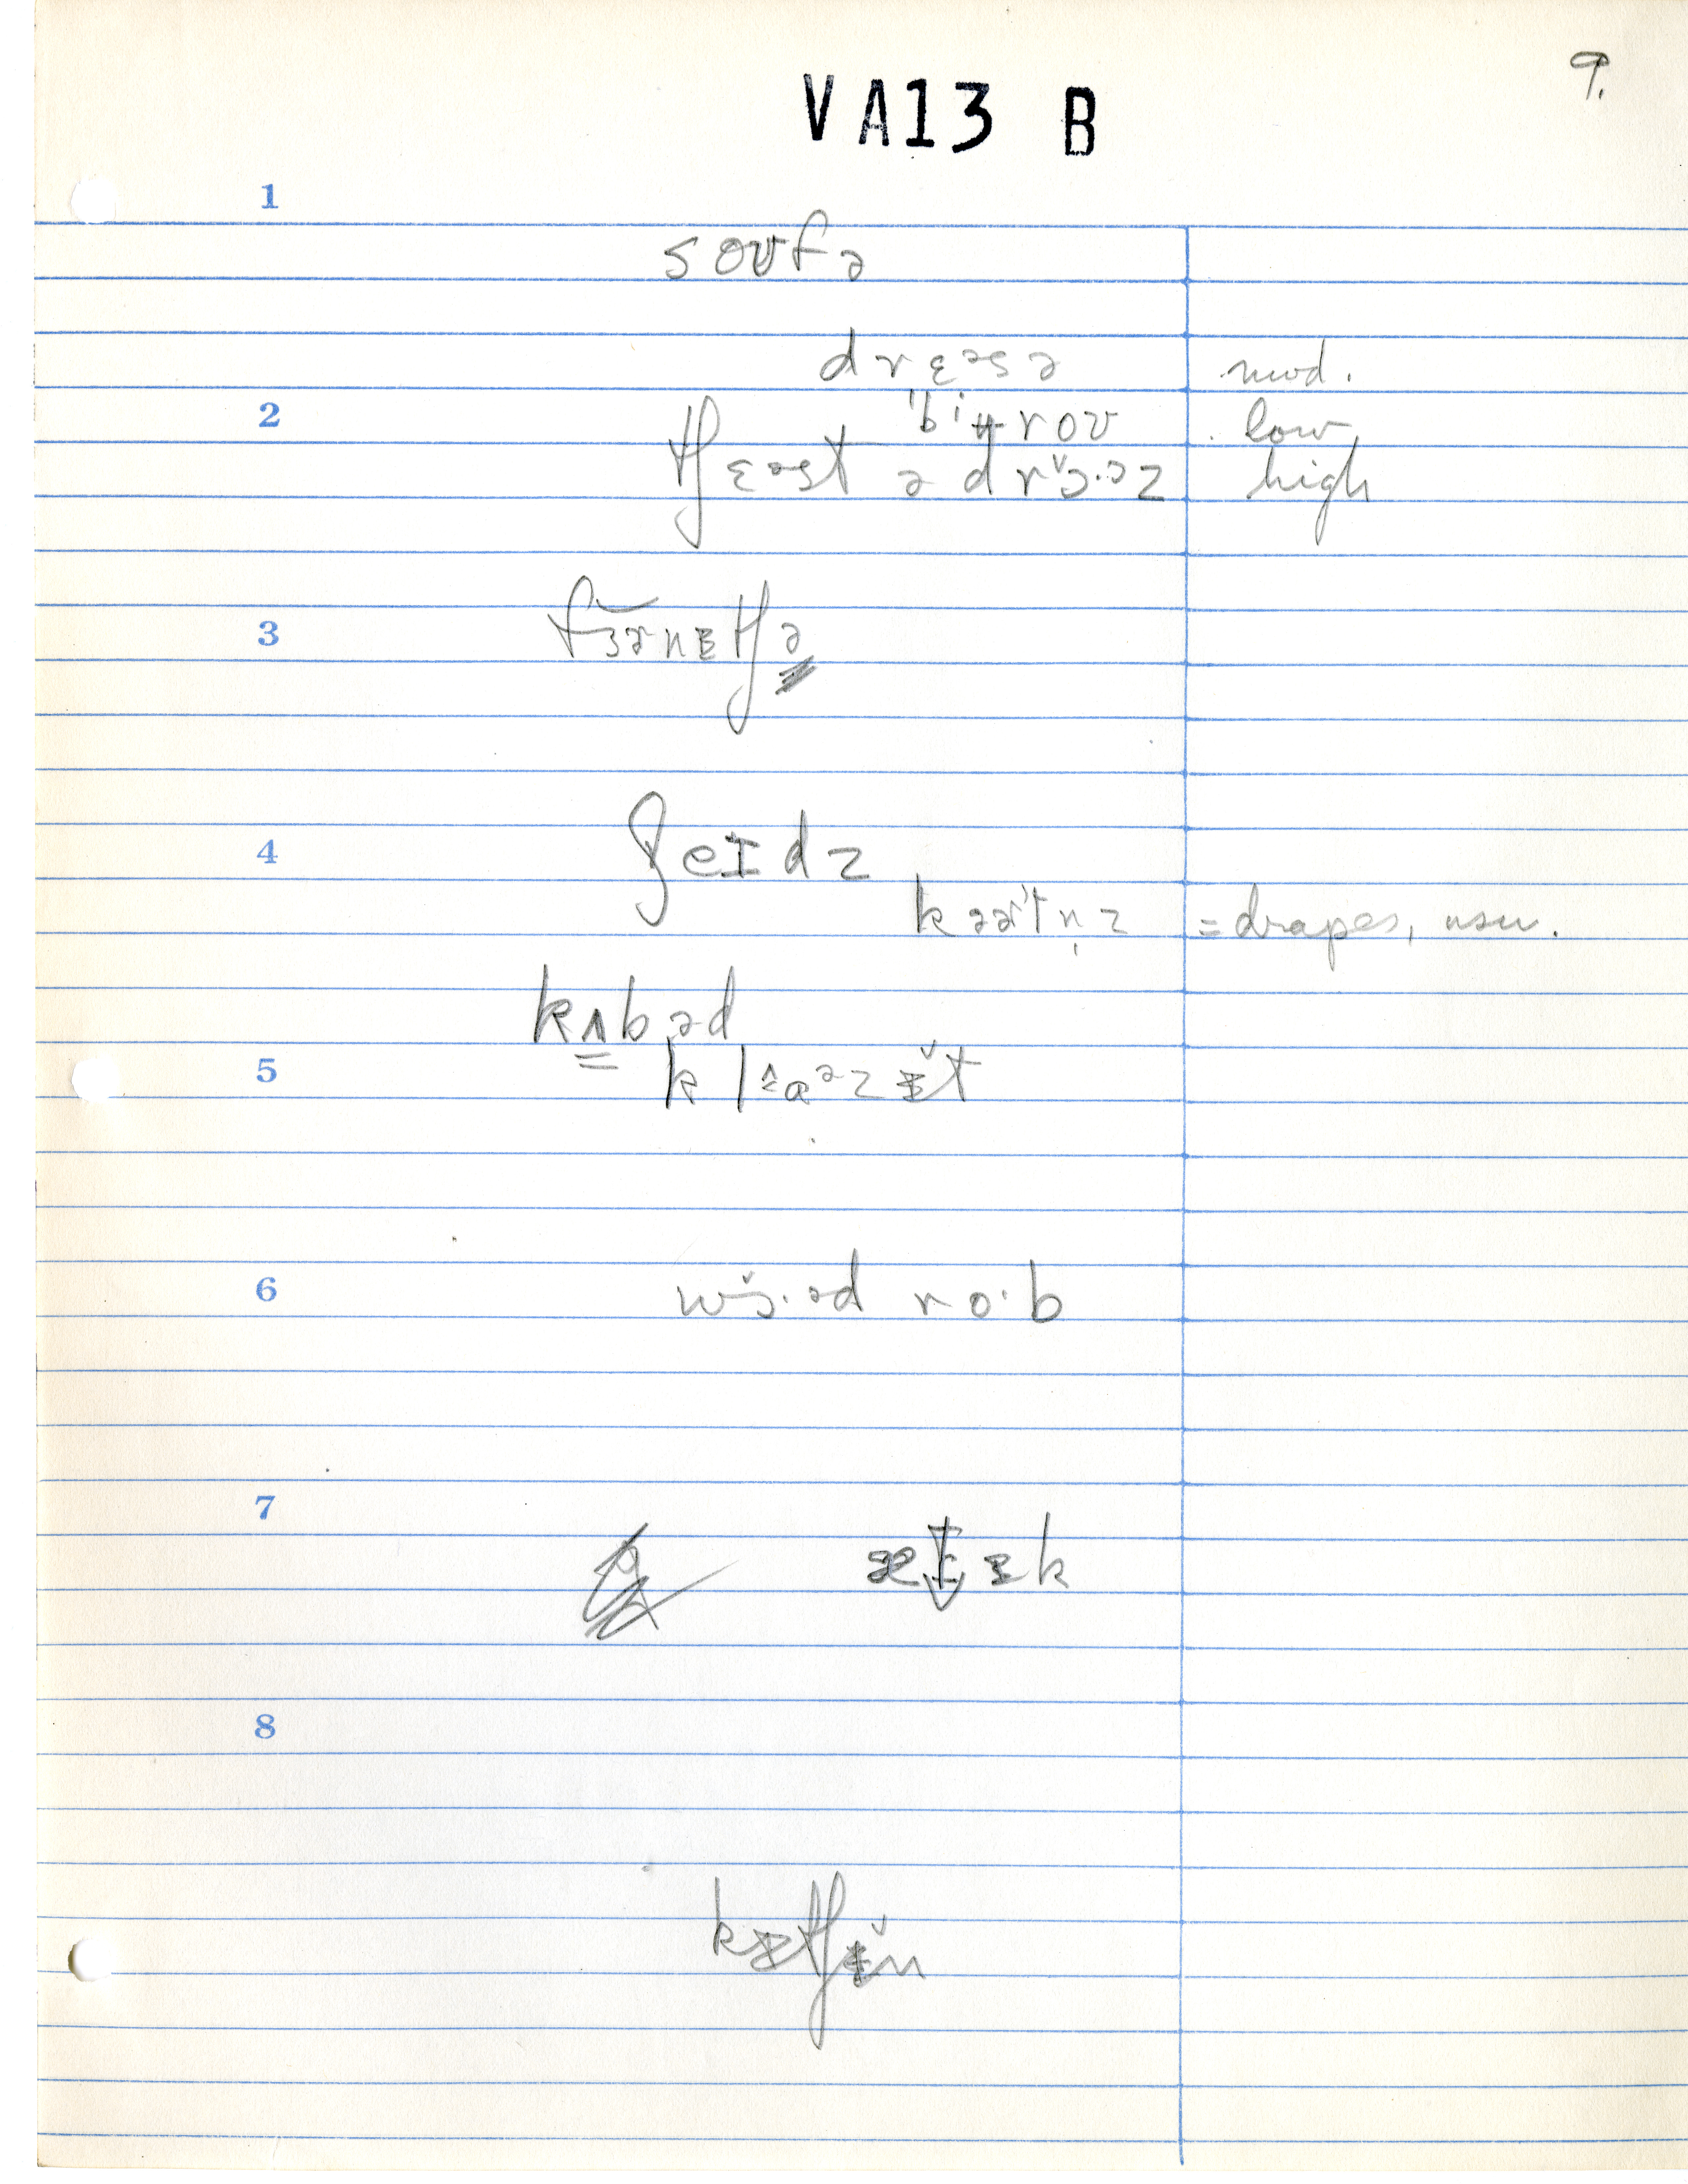 9.
VA13 B
1
soʊfə
drɛəsə mod.
2 ˈbiɪ̵roʊ low
tʃɛəst ə drɔ̌·əz high
3 fɜ̆ənɪtʃə
4 ʃeɪdz
kəətn̩z =drapes, usu.
kʌbəd
5 klɑəzɪ̌t
6 wɔ̌·əd ro·b
7 ætɪk
8
kɪtʃɪ̌n